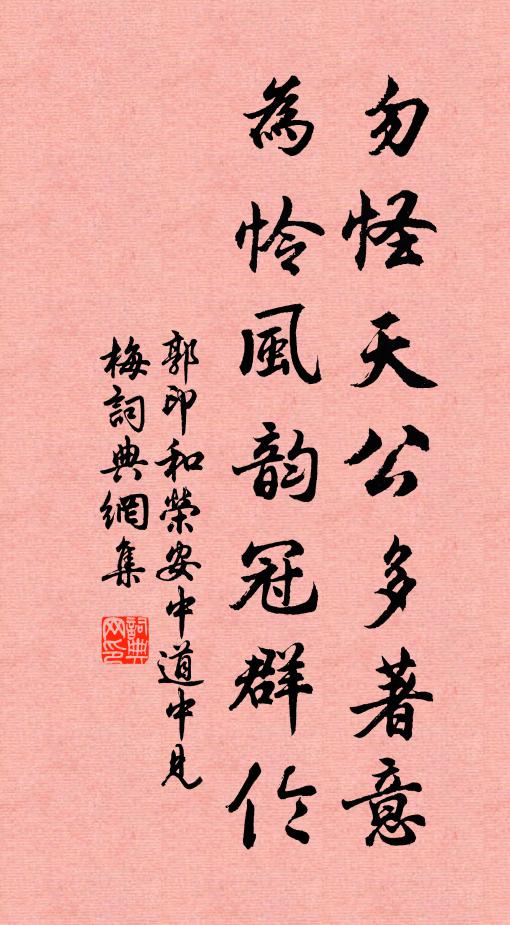 勿怪天公多著意
為怜風韵冠群伦
郭印和榮安中道中見
梅詞典網集
詞典网印